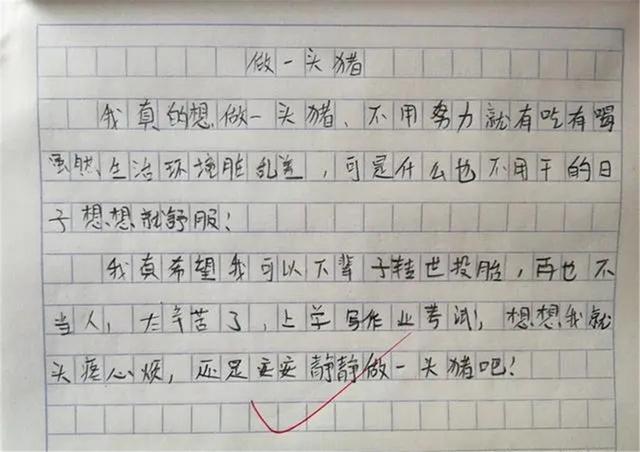 做一头猪
我真的想做一头猪、不用努力就有吃有喝
虽然生治环境脏乱差，可是什么也不用干的日
子想想就舒服！
我真希望我可以下辈子转世投胎，再也不
当人，太辛苦了，上学写作业考试，想想我就
头疼心烦，还是安安静静做一头猪吧！